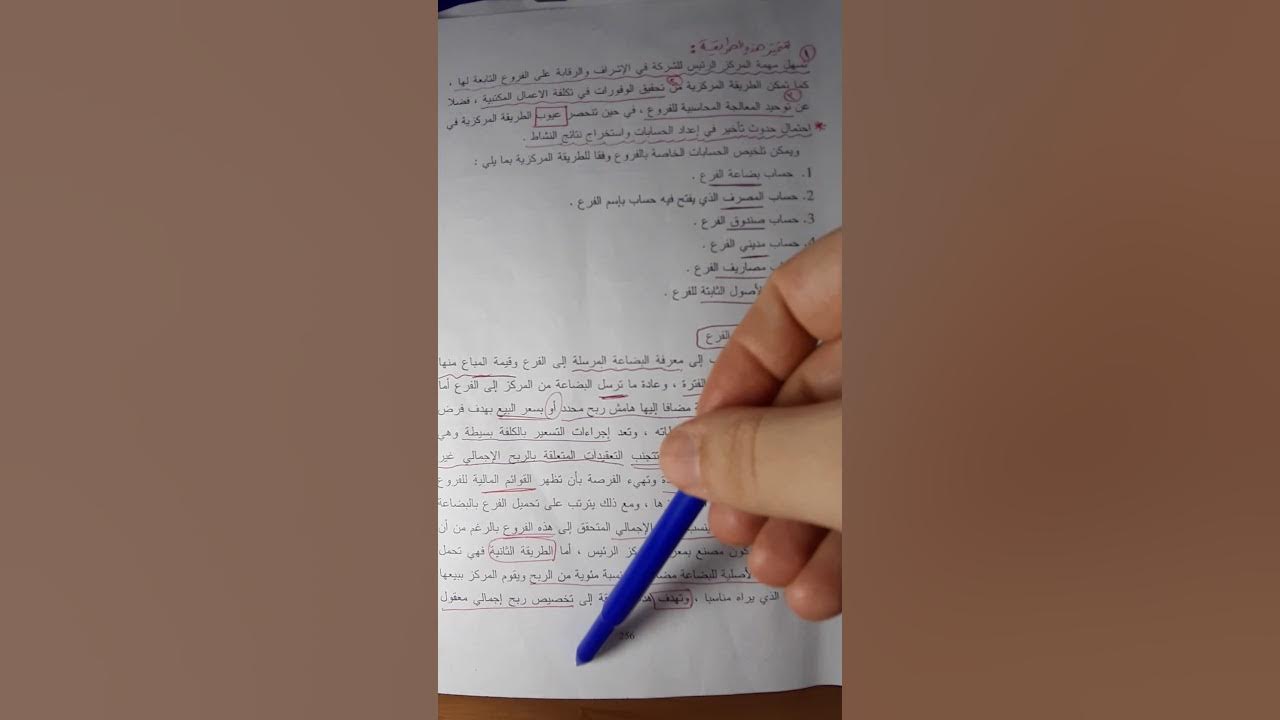 تتميز هذه الطريقة :
١
تسهل مهمة المركز الرئيس للشركة في الإشراف والرقابة على الفروع التابعة لها ،
كما تمكن الطريقة المركزية من تحقيق الوفورات في تكلفة الاعمال المكتبية ، فضلا
عن توحيد المعالجة المحاسبية للفروع ، في حين تنحصر عيوب الطريقة المركزية في
* احتمال حدوث تأخير في إعداد الحسابات واستخراج نتائج النشاط .
ويمكن تلخيص الحسابات الخاصة بالفروع وفقا للطريقة المركزية بما يلي :
1. حساب بضاعة الفرع .
2. حساب المصرف الذي يفتح فيه حساب بإسم الفرع .
3. حساب صندوق الفرع .
4. حساب مديني الفرع .
مصاريف الفرع .
الأصول الثابتة للفرع .
الفرع
إلى معرفة البضاعة المرسلة إلى الفرع وقيمة المباع منها
الفترة ، وعادة ما ترسل البضاعة من المركز إلى الفرع أما
مضافا إليها هامش ربح محدد أو بسعر البيع بهدف فرض
، وتعد إجراءات التسعير بالكلفة بسيطة وهي
تتجنب التعقيدات المتعلقة بالربح الإجمالي غير
وتهيء الفرصة بأن تظهر القوائم المالية للفروع
، ومع ذلك يترتب على تحميل الفرع بالبضاعة
الإجمالي المتحقق إلى هذه الفروع بالرغم من أن
مصنع الرئيس ، أما الطريقة الثانية فهي تحمل
الأصلية للبضاعة نسبة مئوية من الربح ويقوم المركز ببيعها
الذي يراه مناسبا ، وتهدف إلى تخصيص ربح إجمالي معقول
256